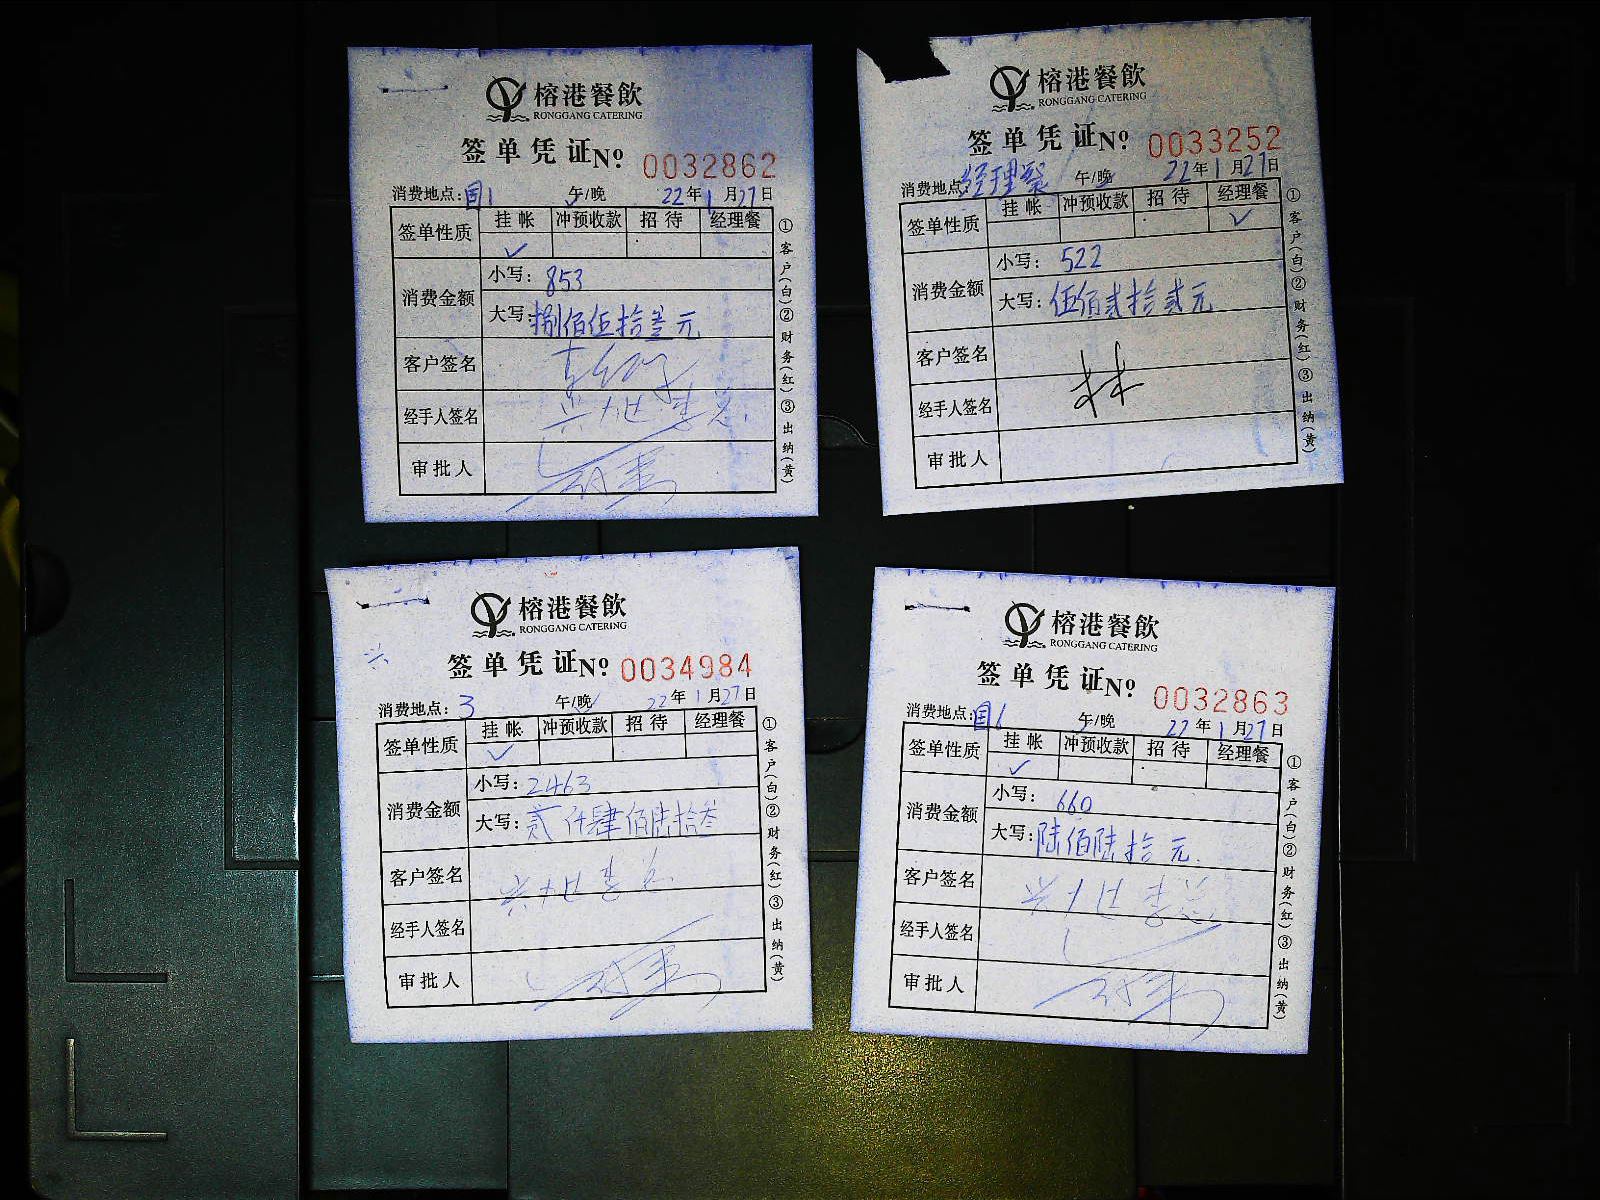 榕港餐飲
RONGGANG CATERING
签单凭证№ 0032862
消费地点:国1 午/晚 22年1月27日
签单性质 挂帐 冲预收款 招待 经理餐
✓
消费金额 小写: 853
大写:捌佰伍拾叁元
客户签名
经手人签名 兴旭李总
审批人
①客户(白)②财务(红)③出纳(黄)
榕港餐飲
RONGGANG CATERING
签单凭证№ 0033252
消费地点:经理餐 午/晚 22年1月27日
签单性质 挂帐 冲预收款 招待 经理餐
✓
消费金额 小写: 522
大写:伍佰贰拾贰元
客户签名
经手人签名 林
审批人
①客户(白)②财务(红)③出纳(黄)
榕港餐飲
RONGGANG CATERING
签单凭证№ 0034984
消费地点:3 午/晚 22年1月27日
签单性质 挂帐 冲预收款 招待 经理餐
✓
消费金额 小写:2463
大写:贰仟肆佰陆拾叁
客户签名 兴旭李总
经手人签名
审批人
①客户(白)②财务(红)③出纳(黄)
榕港餐飲
RONGGANG CATERING
签单凭证№ 0032863
消费地点:国1 午/晚 22年1月27日
签单性质 挂帐 冲预收款 招待 经理餐
✓
消费金额 小写: 660
大写:陆佰陆拾元
客户签名 兴旭李总
经手人签名
审批人
①客户(白)②财务(红)③出纳(黄)